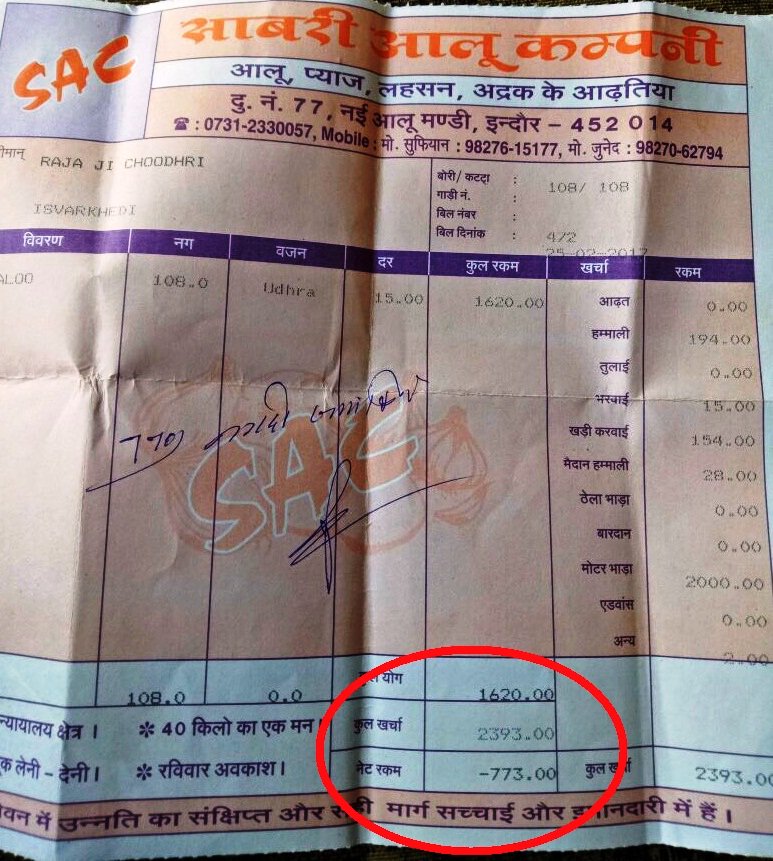 SAC
साबरी आलू कम्पनी
आलू, प्याज, लहसन, अद्रक के आढ़तिया
दु. नं. 77, नई आलू मण्डी, इन्दौर - 452 014
☎ : 0731-2330057, Mobile : मो. सुफियान : 98276-15177, मो. जुनेद : 98270-62794
RAJA JI CHOODHRI
ISVARKHEDI
बोरी/ कटटा : 108/ 108
गाडी नं. :
बिल नंबर : 472
बिल दिनांक : 25-02-2017
विवरण नग वजन दर कुल रकम खर्चा रकम
ALOO 108.0 Udhra 15.00 1620.00 आढ़त 0.00
हम्माली 194.00
तुलाई 0.00
भरवाई 15.00
खड़ी करवाई 154.00
मैदान हम्माली 28.00
ठेला भाड़ा 0.00
बारदान 0.00
मोटर भाड़ा 2000.00
एडवांस 0.00
अन्य 2.00
770
SAC
108.0 0.0 कुल योग 1620.00
न्यायालय क्षेत्र । * 40 किलो का एक मन । कुल खर्चा 2393.00
लेनी - देनी । * रविवार अवकाश । नेट रकम -773.00 कुल खर्चा 2393.00
में उन्नति का संक्षिप्त और सही मार्ग सच्चाई और इमानदारी में हैं ।